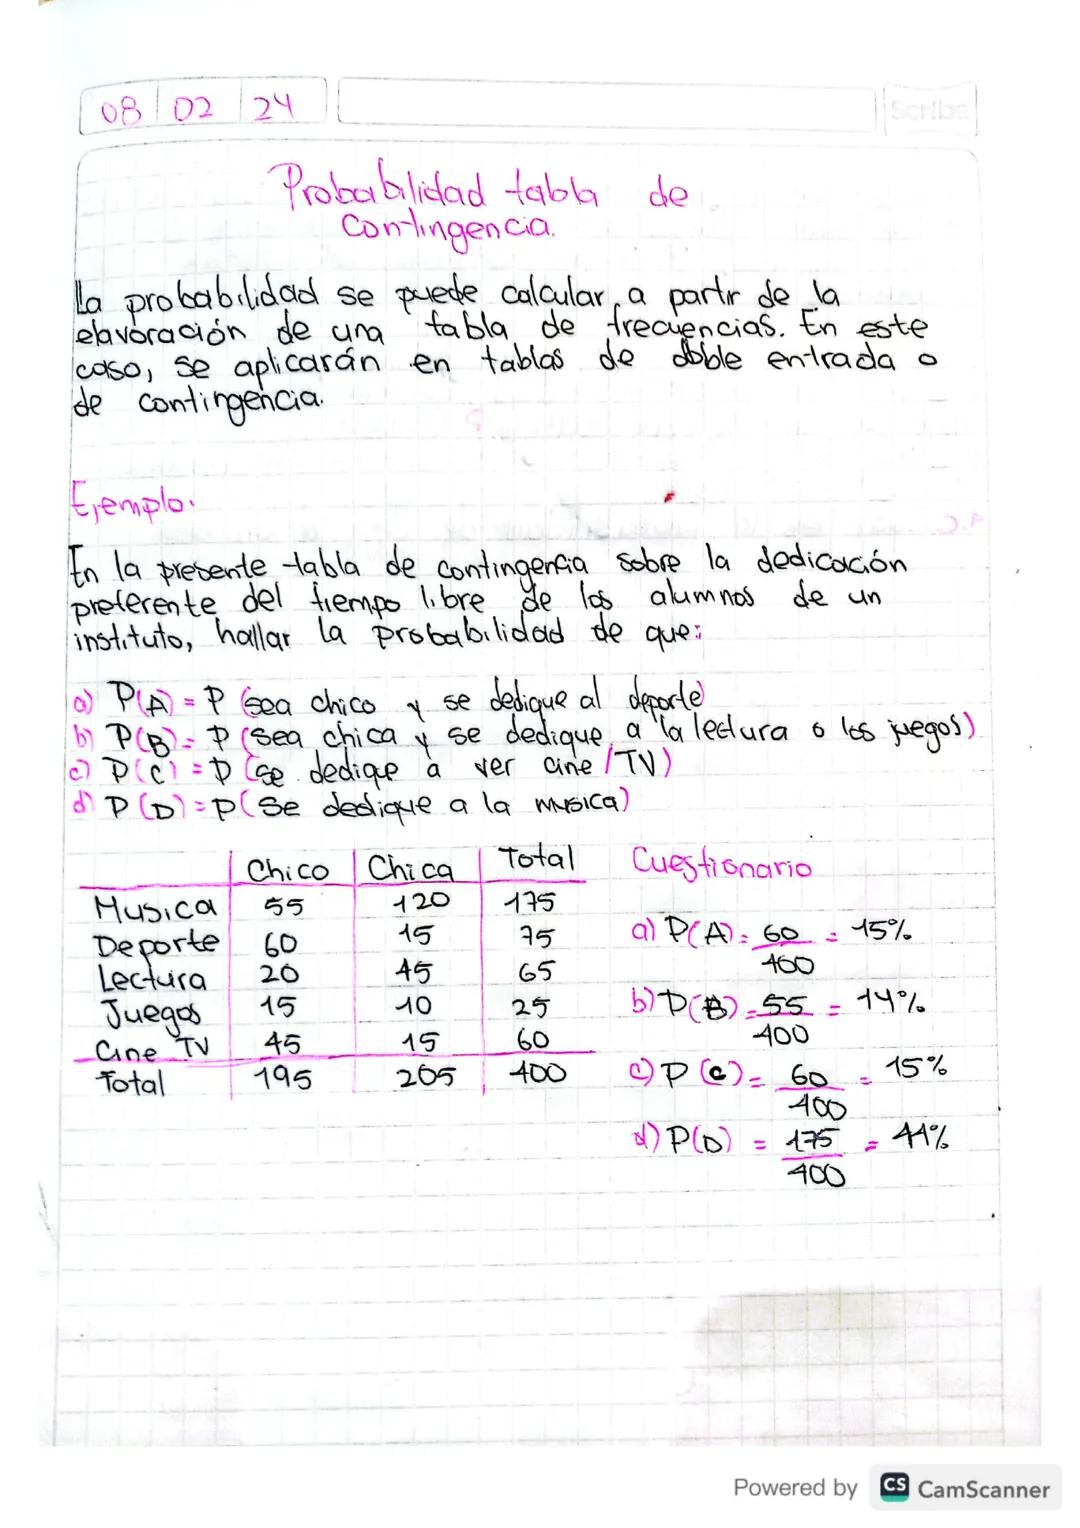 08 02 24
Scribe
Probabilidad tabla de
Contingencia.
La probabilidad se puede calcular a partir de la
elavoración de una tabla de frecuencias. En este
caso, se aplicarán en tablas de doble entrada o
de contingencia.
Ejemplo.
En la presente tabla de contingencia sobre la dedicación
preferente del tiempo libre de los alumnos de un
instituto, hallar la probabilidad de que:
a) P(A) = P (sea chico y se dedique al deporte)
b) P(B) = P (sea chica y se dedique a la lectura o los juegos)
c) P(C) = P (se dedique a ver cine/TV)
d) P(D) = P (Se dedique a la musica)
Chico Chica Total
Musica 55 120 175
Deporte 60 15 75
Lectura 20 45 65
Juegos 15 10 25
Cine TV 45 15 60
Total 195 205 400
Cuestionario
a) P(A) = 60/400 = 15%
b) P(B) = 55/400 = 14%
c) P(C) = 60/400 = 15%
d) P(D) = 175/400 = 44%
Powered by CS CamScanner